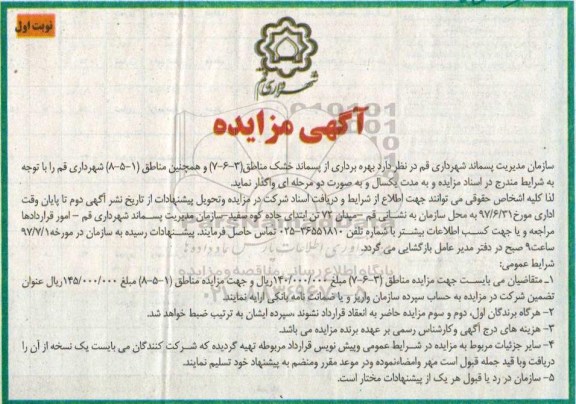 نوبت اول
شهرداری قم
آگهی مزایده
سازمان مدیریت پسماند شهرداری قم در نظر دارد بهره برداری از پسماند خشک مناطق(۳-۶-۷) و همچنین مناطق (۱-۵-۸) شهرداری قم را با توجه
به شرایط مندرج در اسناد مزایده و به مدت یکسال و به صورت دو مرحله ای واگذار نماید.
لذا کلیه اشخاص حقوقی می توانند جهت اطلاع از شرایط و دریافت اسناد شرکت در مزایده وتحویل پیشنهادات از تاریخ نشر آگهی دوم تا پایان وقت
اداری مورخ ۹۷/۶/۳۱ به محل سازمان به نشانی قم -میدان ۷۲ تن ابتدای جاده کوه سفید-سازمان مدیریت پسماند شهرداری قم - امور قراردادها
مراجعه و یا جهت کسب اطلاعات بیشتر با شماره تلفن ۳۶۵۵۱۸۱۰-۰۲۵ تماس حاصل فرمایند. پیشنهادات رسیده به سازمان در مورخه ۹۷/۷/۱
ساعت ۹ صبح در دفتر مدیر عامل بازگشایی می گردد.
شرایط عمومی:
۱- متقاضیان می بایست جهت مزایده مناطق (۳-۶-۷) مبلغ ۱۴۰/۰۰۰/۰۰۰ریال و جهت مزایده مناطق (۱-۵-۸) مبلغ ۱۴۵/۰۰۰/۰۰۰ریال عنوان
تضمین شرکت در مزایده به حساب سپرده سازمان واریز و یا ضمانت نامه بانکی ارایه نمایند.
۲- هرگاه برندگان اول، دوم و سوم مزایده حاضر به انعقاد قرارداد نشوند ،سپرده ایشان به ترتیب ضبط خواهد شد.
۳- هزینه های درج آگهی وکارشناس رسمی بر عهده برنده مزایده می باشد.
۴- سایر جزئیات مربوط به مزایده در شرایط عمومی وپیش نویس قرارداد مربوطه تهیه گردیده که شرکت کنندگان می بایست یک نسخه از آن را
دریافت وبا قید جمله قبول است مهر وامضاءنموده ودر موعد مقرر ومنضم به پیشنهاد خود تسلیم نمایند.
۵- سازمان در رد یا قبول هر یک از پیشنهادات مختار است.